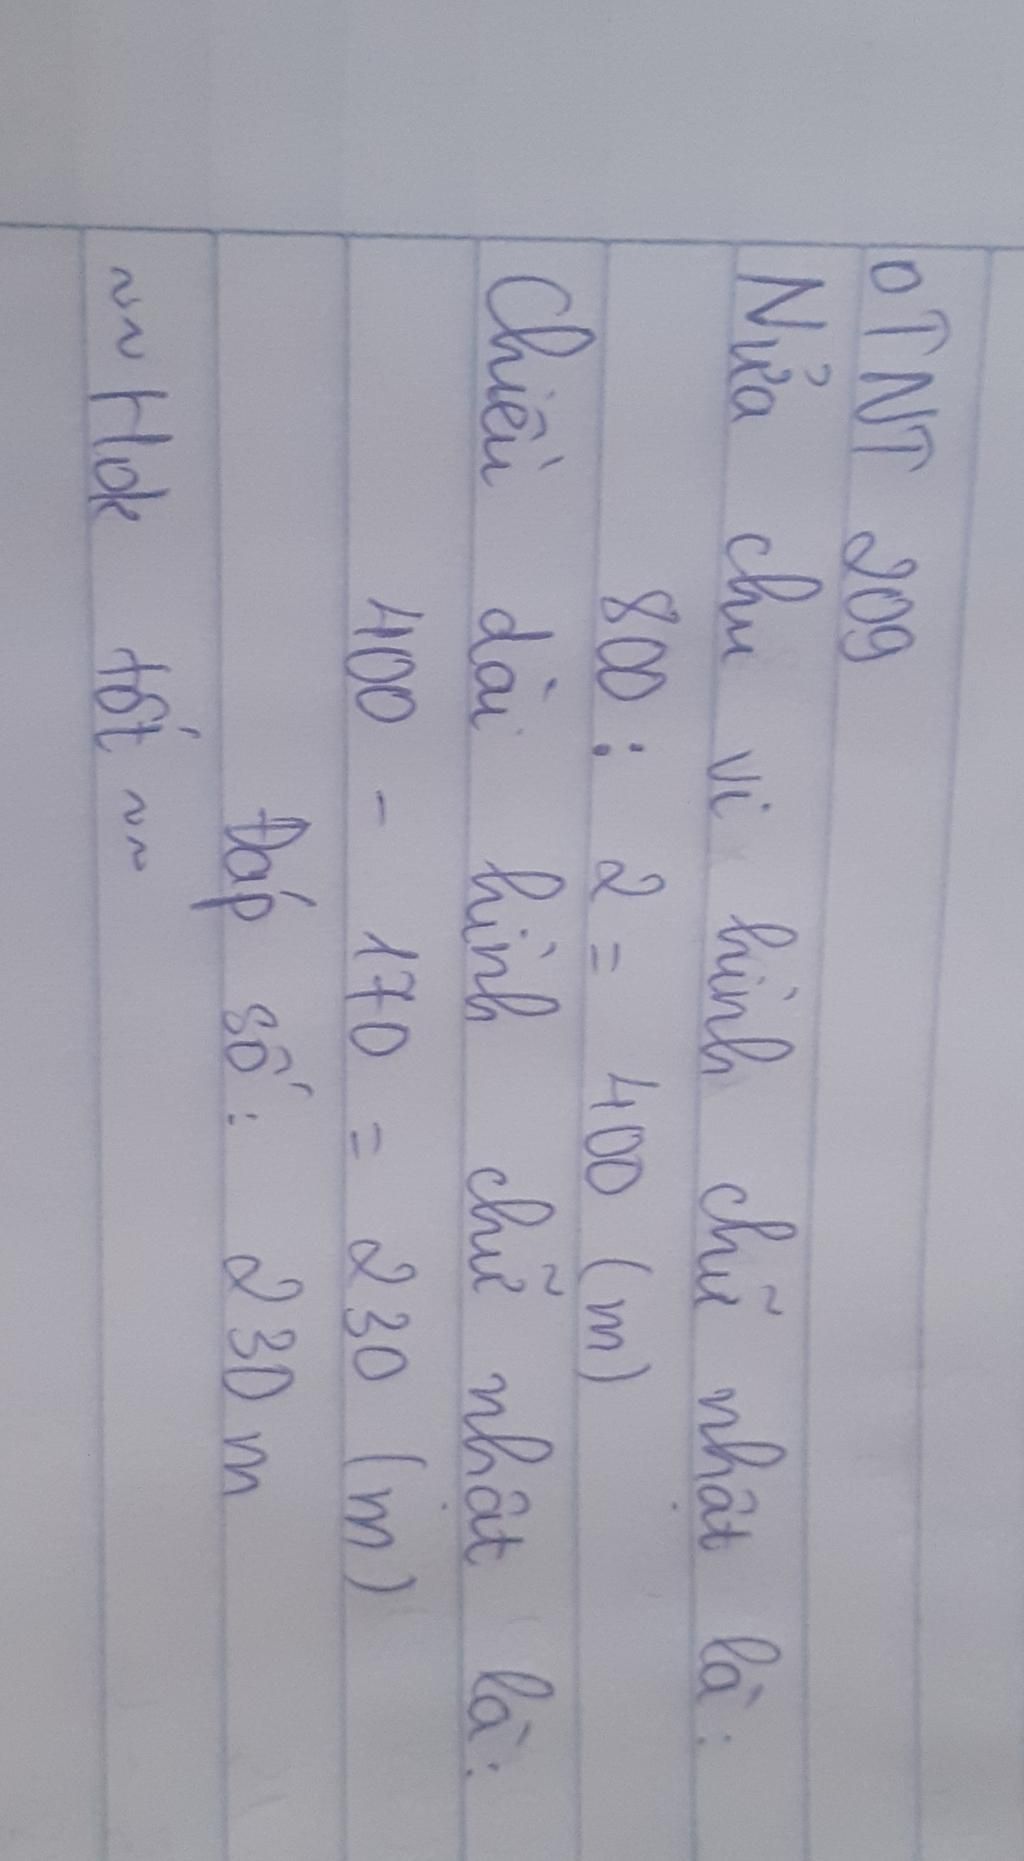 oTNT 209
Nửa chu vi hình chữ nhât là:
800 : 2 = 400 (m)
Chiều dài hình chữ nhât là:
400 - 170 = 230 (m)
Đáp số: 230 m
~~ Hok tốt ~~